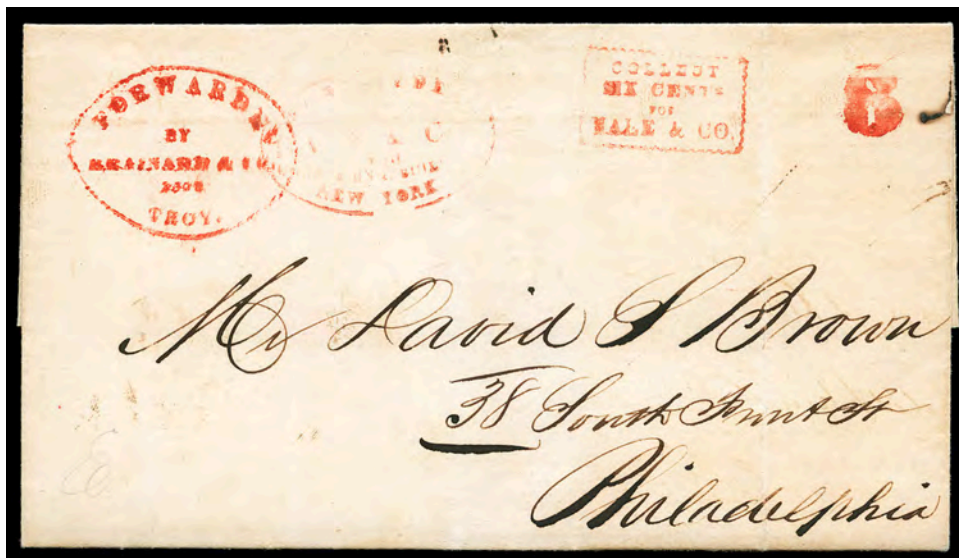 FORWARDED
BY
BRAINARD & CO.
FROM
TROY.
NEW YORK
COLLECT
SIX CENTS
FOR
HALE & CO.
6
Mr David S Brown
38 South Front St
Philadelphia